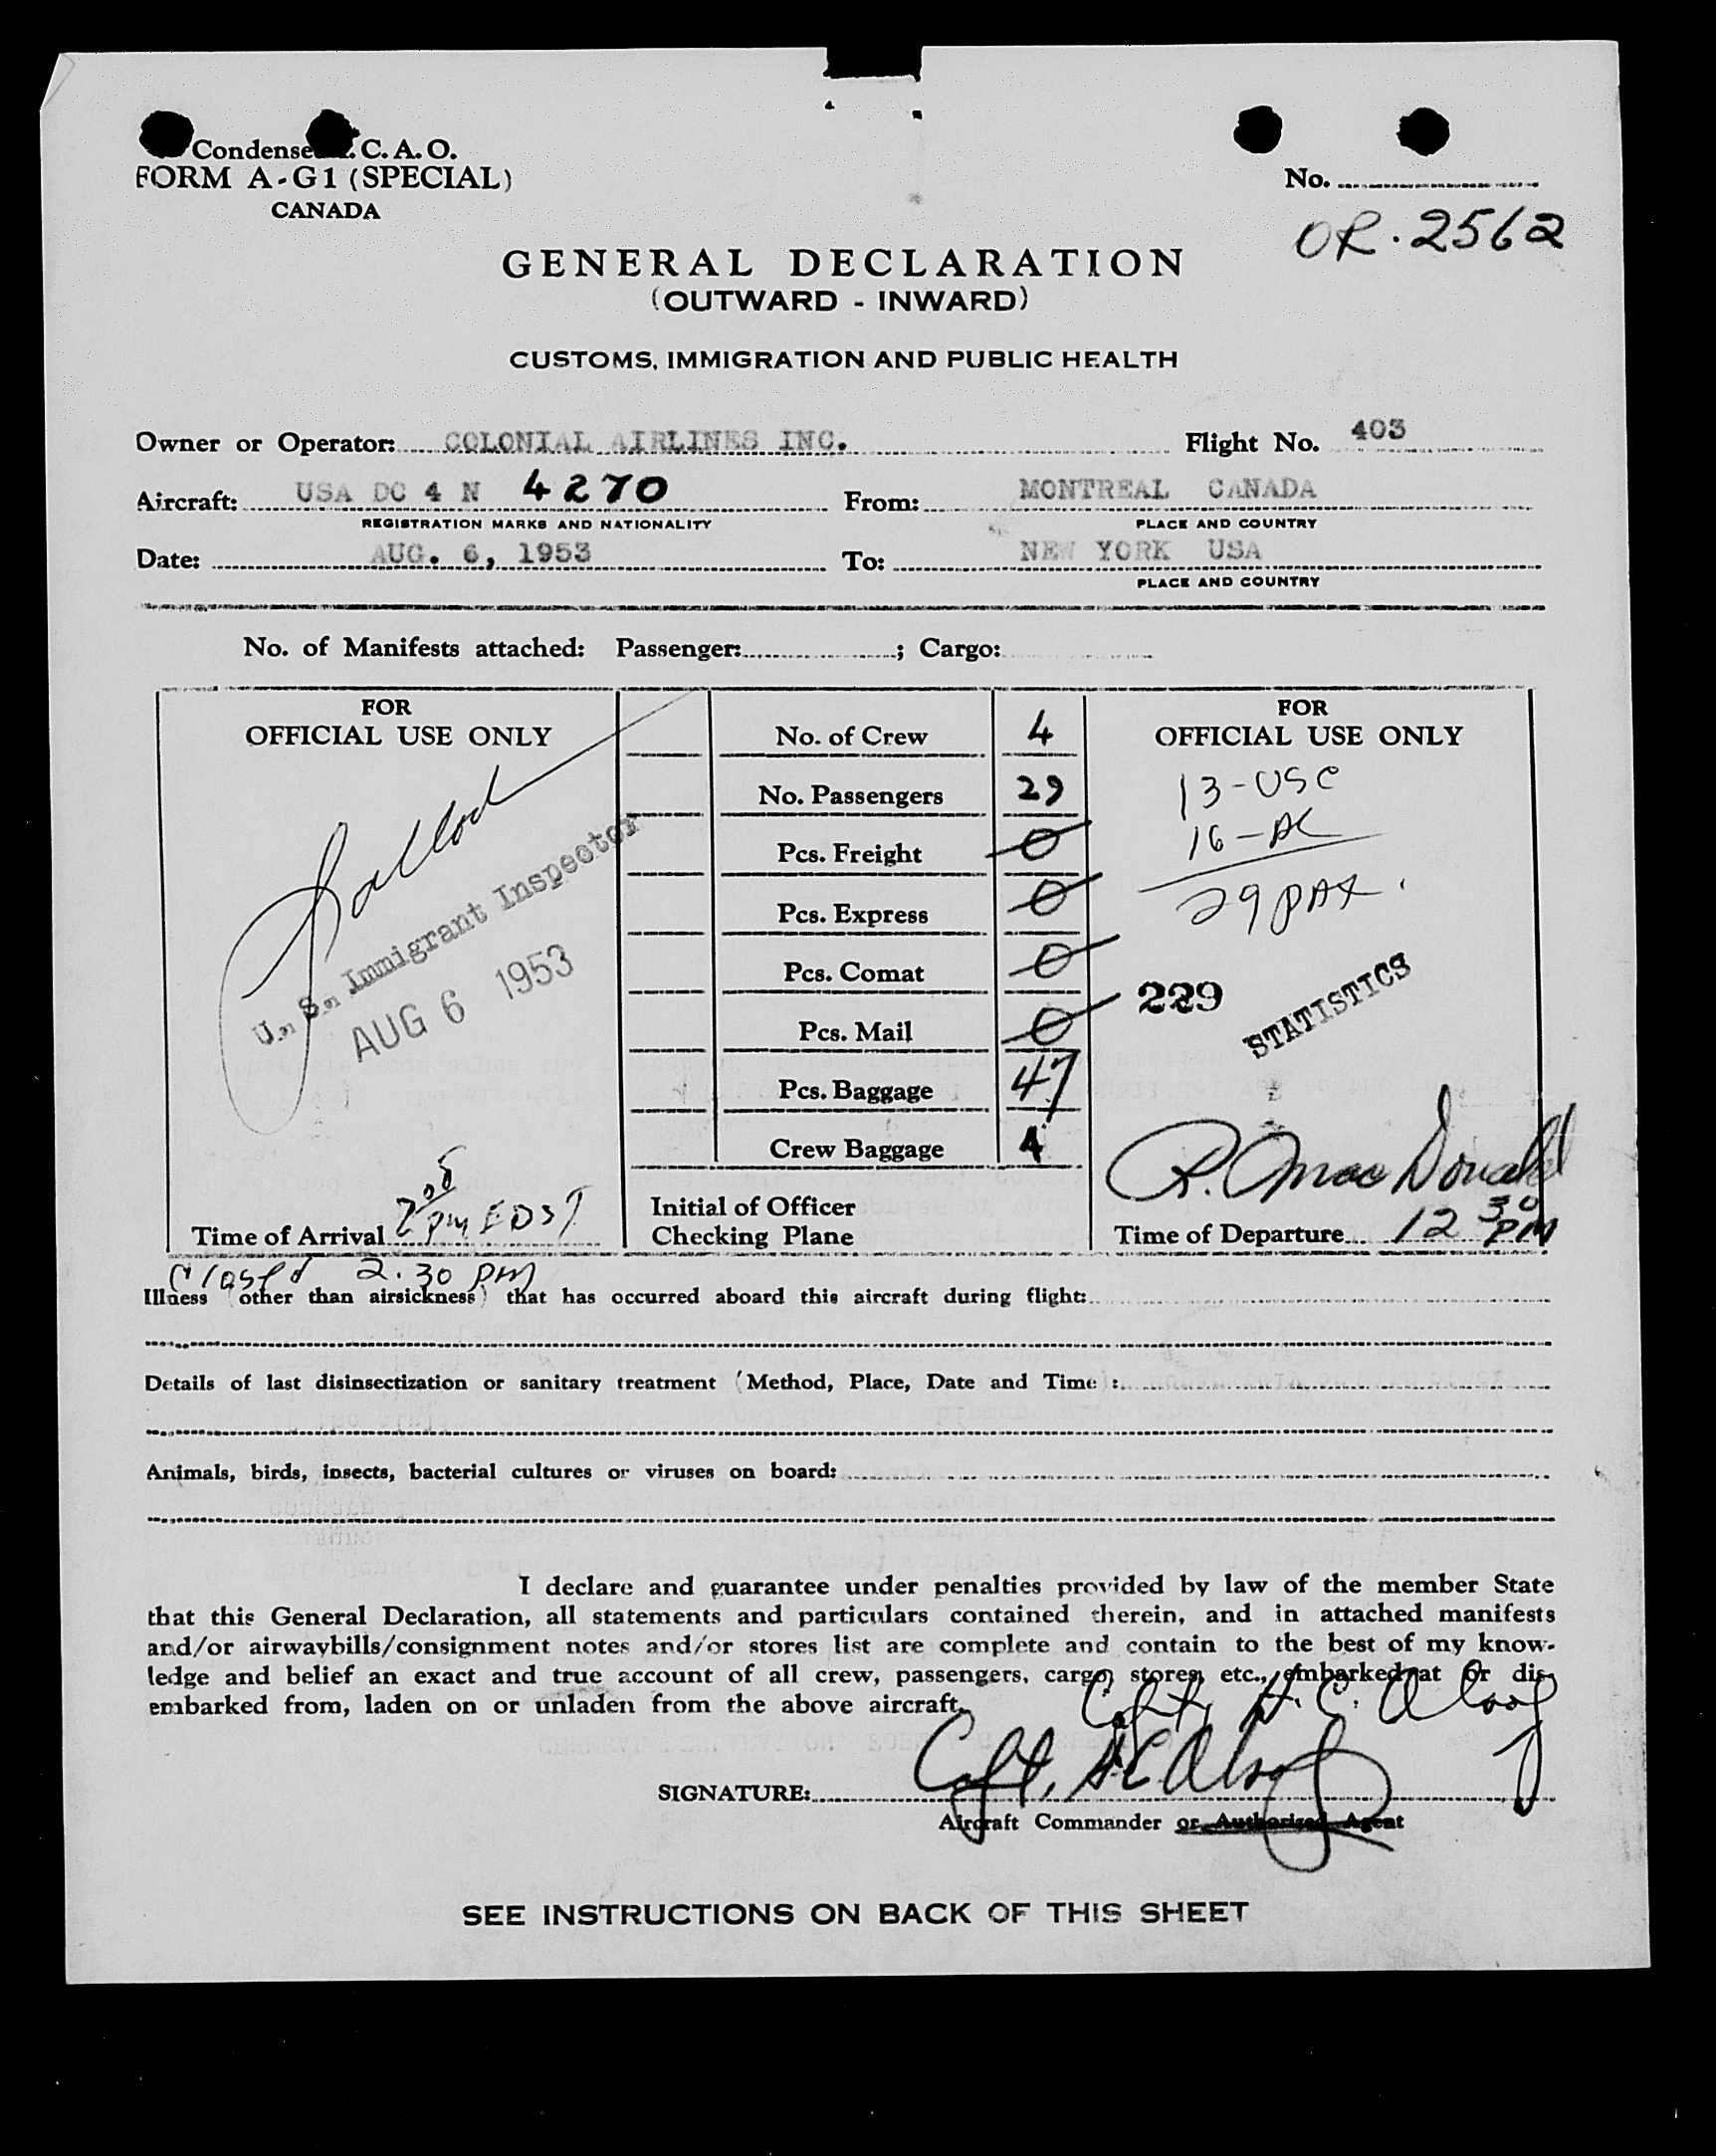 Condensed I.C.A.O.
FORM A-G1 (SPECIAL)
CANADA
No.
OR. 2562
GENERAL DECLARATION
(OUTWARD - INWARD)
CUSTOMS, IMMIGRATION AND PUBLIC HEALTH
Owner or Operator: COLONIAL AIRLINES INC. Flight No. 403
Aircraft: USA DC 4 N 4270 From: MONTREAL CANADA
REGISTRATION MARKS AND NATIONALITY PLACE AND COUNTRY
Date: AUG. 6, 1953 To: NEW YORK USA
PLACE AND COUNTRY
No. of Manifests attached: Passenger: ; Cargo:
FOR
OFFICIAL USE ONLY
U. S. Immigrant Inspector
AUG 6 1953
Time of Arrival 2 05 pm EDST
Closed 2.30 PM
No. of Crew 4
No. Passengers 29
Pcs. Freight 0
Pcs. Express 0
Pcs. Comat 0
Pcs. Mail 0
Pcs. Baggage 47
Crew Baggage 4
Initial of Officer
Checking Plane
FOR
OFFICIAL USE ONLY
13-USC
16-AC
29 PAX.
229
STATISTICS
R. MacDonald
Time of Departure 12 30 PM
Illness (other than airsickness) that has occurred aboard this aircraft during flight:
Details of last disinsectization or sanitary treatment (Method, Place, Date and Time):
Animals, birds, insects, bacterial cultures or viruses on board:
I declare and guarantee under penalties provided by law of the member State
that this General Declaration, all statements and particulars contained therein, and in attached manifests
and/or airwaybills/consignment notes and/or stores list are complete and contain to the best of my know-
ledge and belief an exact and true account of all crew, passengers, cargo, stores, etc., embarked at or dis-
embarked from, laden on or unladen from the above aircraft.
Capt. H. C.
SIGNATURE: Capt.
Aircraft Commander or Authorized Agent
SEE INSTRUCTIONS ON BACK OF THIS SHEET